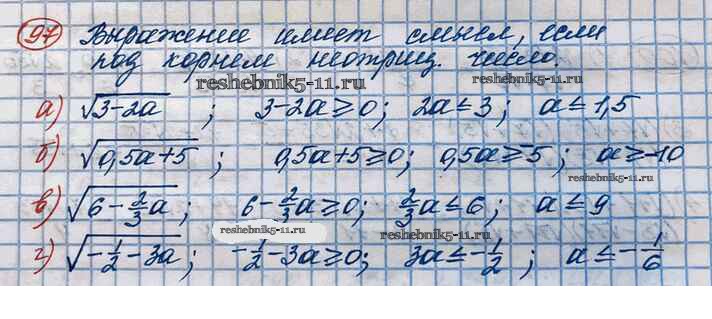 97 Выражение имеет смысл, если
под корнем неотриц. число.
reshebnik5-11.ru reshebnik5-11.ru
а) √3-2a ; 3-2a≥0; 2a≤3; a≤1,5
б) √0,5a+5 ; 0,5a+5≥0; 0,5a≥-5; a≥-10
reshebnik5-11.ru
в) √6-2/3a ; 6-2/3a≥0; 2/3a≤6; a≤9
reshebnik5-11.ru reshebnik5-11.ru
г) √-1/2-3a ; -1/2-3a≥0; 3a≤-1/2; a≤-1/6